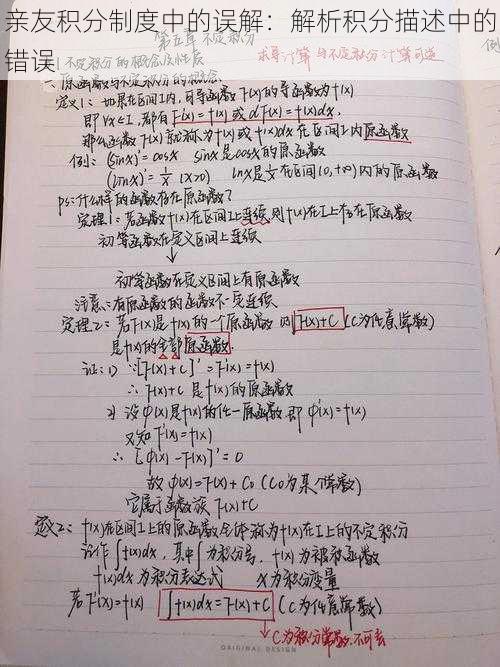 亲友积分制度中的误解：解析积分描述中的
错误
第五章 不定积分
§1 不定积分的概念及性质 求导计算与不定积分计算可逆
一、原函数与不定积分的概念
定义1：如果在区间I内，可导函数F(x)的导函数为f(x)
即∀x∈I，都有F'(x)=f(x)或dF(x)=f(x)dx，
那么函数F(x)就称为f(x)或f(x)dx在区间I内原函数
例：(sinx)'=cosx sinx是cosx的原函数
(lnx)'=1/x (x>0) lnx是1/x在区间(0,+∞)内的原函数
ps:什么样的函数存在原函数？
定理1：若函数f(x)在区间I上连续,则f(x)在I上存在原函数
初等函数在定义区间上连续
↓
初等函数在定义区间上有原函数
注意：有原函数的函数不一定连续
定理2：若F(x)是f(x)的一个原函数 则F(x)+C (C为任意常数)
是f(x)的全部原函数
证：1) ∵[F(x)+C]'=F'(x)=f(x)
∴F(x)+C 是f(x)的原函数
2) 设φ(x)是f(x)的任一原函数.即 φ'(x)=f(x)
又知F'(x)=f(x)
∴[φ(x)-F(x)]'=0
故φ(x)=F(x)+C₀ (C₀为某个常数)
它属于函数族 F(x)+C
定义2：f(x)在区间I上的原函数全体称为f(x)在I上的不定积分
记作∫f(x)dx，其中∫为积分号，f(x)为被积函数
f(x)dx为积分表达式 x为积分变量
若F'(x)=f(x) ∫f(x)dx=F(x)+C (C为任意常数)
→C为积分常数.不可丢
ORIGINAL DESIGN